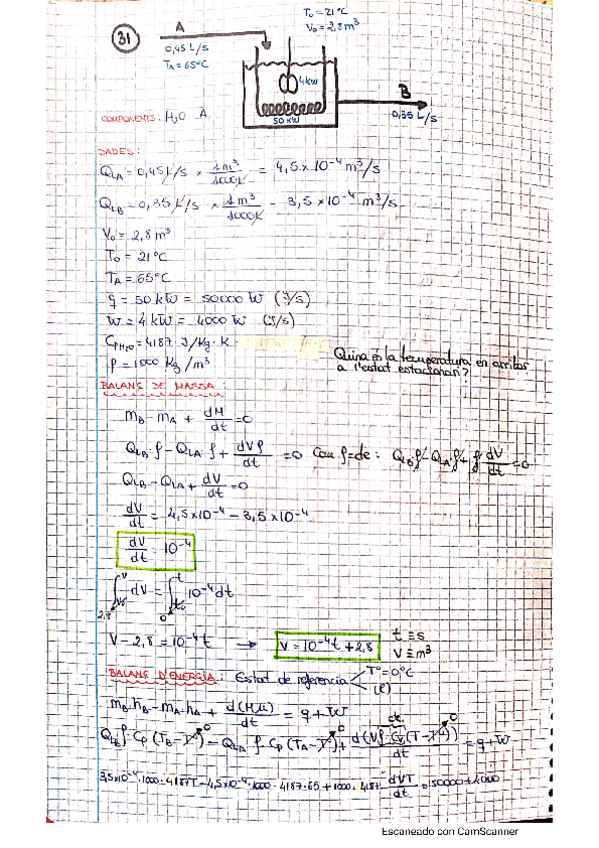 31
A
0,45 L/s
TA = 65ºC
T₀ = 21ºC
V₀ = 2,8 m³
4 kW
50 kW
B
0,35 L/s
COMPONENTS: H₂O A
DADES:
QLA = 0,45 L/s × 1 m³/1000 L = 4,5 × 10⁻⁴ m³/s
QLB = 0,35 L/s × 1 m³/1000 L = 3,5 × 10⁻⁴ m³/s
V₀ = 2,8 m³
T₀ = 21ºC
TA = 65ºC
q = 50 kW = 50000 W (J/s)
W = 4 kW = 4000 W (J/s)
CpH₂O = 4187 J/Kg·K
ρ = 1000 Kg/m³
Quina és la temperatura en arribar
a l'estat estacionari?
BALANÇ DE MASSA:
mB - mA + dM/dt = 0
QLB·ρ - QLA·ρ + dVρ/dt = 0 Com ρ=cte: QLB·ρ - QLA·ρ + ρ dV/dt = 0
QLB - QLA + dV/dt = 0
dV/dt = 4,5×10⁻⁴ - 3,5×10⁻⁴
dV/dt = 10⁻⁴
∫ V V₀ dV = ∫ t t₀ 10⁻⁴ dt
2,8 0
V - 2,8 = 10⁻⁴ t → V = 10⁻⁴ t + 2,8 t ≡ s
V ≡ m³
BALANÇ D'ENERGIA: Estat de referència Tº = 0ºC
(l)
mB·hB - mA·hA + d(Mu)/dt = q + W
cte
QLB·ρ·Cp (TB - Tº) - QLA·ρ·Cp (TA - Tº) + d(Vρ·Cv(T - Tº))/dt = q + W
0 0 0
3,5×10⁻⁴·1000·4187T - 4,5×10⁻⁴·1000·4187·65 + 1000·4187 dVT/dt = 50000 + 4000
Escaneado con CamScanner